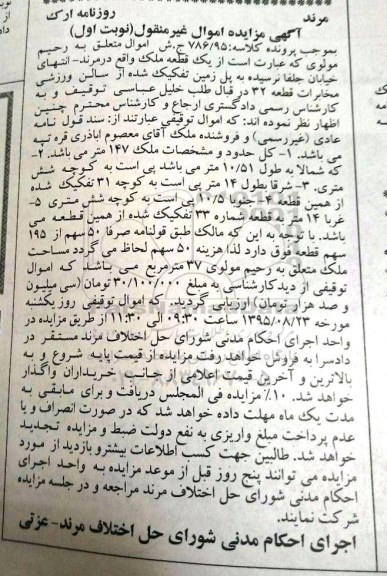 مرند
روزنامه ارک
آگهی مزایده اموال غیرمنقول(نوبت اول)
بموجب پرونده کلاسه:۷۸۶/۹۵ ج.ش اموال متعلق به رحیم
مولوی که عبارت است از یک قطعه ملک واقع درمرند-انتهای
خیابان جلفا نرسیده به پل زمین تفکیک شده از سالن ورزشی
مخابرات قطعه ۳۲ در قبال طلب خلیل عباسی توقیف و به
کارشناس رسمی دادگستری ارجاع و کارشناس محترم چنین
اظهار نظر نموده اند: که اموال توقیفی عبارتند از: سند قول نامه
عادی (غیررسمی) و فروشنده ملک آقای معصوم اباذری قره تپه
می باشد. ۱- کل حدود و مشخصات ملک ۱۴۷ متر می باشد. ۲-
که شمالا به طول ۱۰/۵۱ متر می باشد پی است به کوچه شش
متری. ۳- شرقا بطول ۱۴ متر پی است به کوچه ۳۱ تفکیک شده
از همین قطعه ۴- جنوبا ۱۰/۵ پی است به کوچه شش متری ۵-
غربا ۱۴ متر به قطعه شماره ۳۳ تفکیک شده از همین قطعه می
باشد. با توجه به این که مالک طبق قولنامه صرفا ۵۰ سهم از ۱۹۵
سهم قطعه فوق دارد لذا هزینه ۵۰ سهم لحاظ می گردد مساحت
ملک متعلق به رحیم مولوی ۳۷ مترمربع می باشد که اموال
توقیفی از دید کارشناسی به مبلغ ۳۰/۱۰۰/۰۰۰ تومان (سی میلیون
و صد هزار تومان) ارزیابی گردید. که اموال توقیفی روز یکشنبه
مورخه ۱۳۹۵/۰۸/۲۳ ساعت ۰۹:۳۰ الی ۱۱:۳۰ از طریق مزایده در
واحد اجرای احکام مدنی شورای حل اختلاف مرند مستقر در
دادسرا به فروش خواهد رفت مزایده از قیمت پایه شروع و به
بالاترین و آخرین قیمت اعلامی از جانب خریداران واگذار
خواهد شد. ۱۰٪ مزایده فی المجلس دریافت و برای مابقی به
مدت یک ماه مهلت داده خواهد شد که در صورت انصراف و یا
عدم پرداخت مبلغ واریزی به نفع دولت ضبط و مزایده تجدید
خواهد شد. طالبین جهت کسب اطلاعات بیشترو بازدید از مورد
مزایده می توانند پنج روز قبل از موعد مزایده به واحد اجرای
احکام مدنی شورای حل اختلاف مرند مراجعه و در جلسه مزایده
شرکت نمایند.
اجرای احکام مدنی شورای حل اختلاف مرند- عزتی